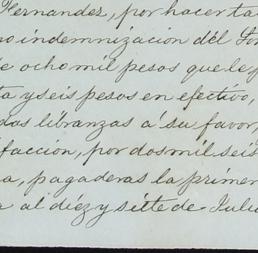 Hernandez, por hacer ta
no indemnizacion del Ton
e ocho mil pesos que le p
ta y seis pesos en efectivo,
das libranzas a' su favor,
faccion, por dos mil seis
a, pagaderas la primer
al diéz y siéte de Julio